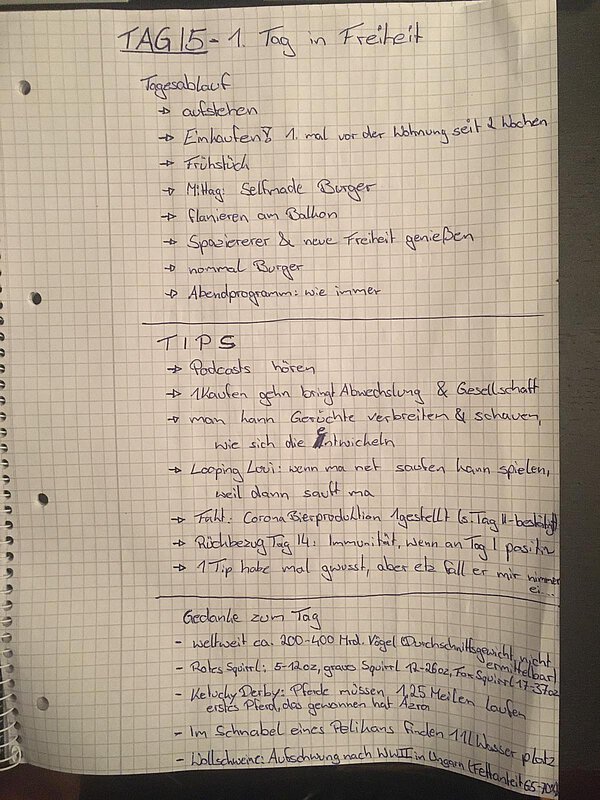 TAG 15 - 1. Tag in Freiheit
Tagesablauf
→ aufstehen
→ Einkaufen! 1. mal vor der Wohnung seit 2 Wochen
→ Frühstück
→ Mittag: Selfmade Burger
→ flanieren am Balkon
→ Spaziererer & neue Freiheit genießen
→ nommal Burger
→ Abendprogramm: wie immer
TIPS
→ Podcasts hören
→ 1Kaufen gehn bringt Abwechslung & Gesellschaft
→ man kann Gerüchte verbreiten & schauen,
wie sich die entwickeln
→ Looping Loui: wenn ma net saufen kann spielen,
weil dann sauft ma
→ Fakt: Corona Bierproduktion 1gestellt (s. Tag 11-bestätigt)
→ Rückbezug Tag 14: Immunität, wenn an Tag 1 positiv
→ 1 Tip habe mal gwusst, aber etz fall er mir nimmer
ei...
Gedanke zum Tag
- weltweit ca. 200-400 Mrd. Vögel (Durchschnittsgewicht nicht
ermittelbar)
- Rotes Squirrl: 5-12oz, graues Squirrl 12-26oz, Fox Squirrl 17-37oz
- Ketucky Derby: Pferde müssen 1,25 Meilen laufen
erstes Pferd, das gewonnen hat Azra
- Im Schnabel eines Pelikans finden 11l Wasser platz
- Wollschweine: Aufschwung nach WWII in Ungarn (Fettanteil 65-70%)